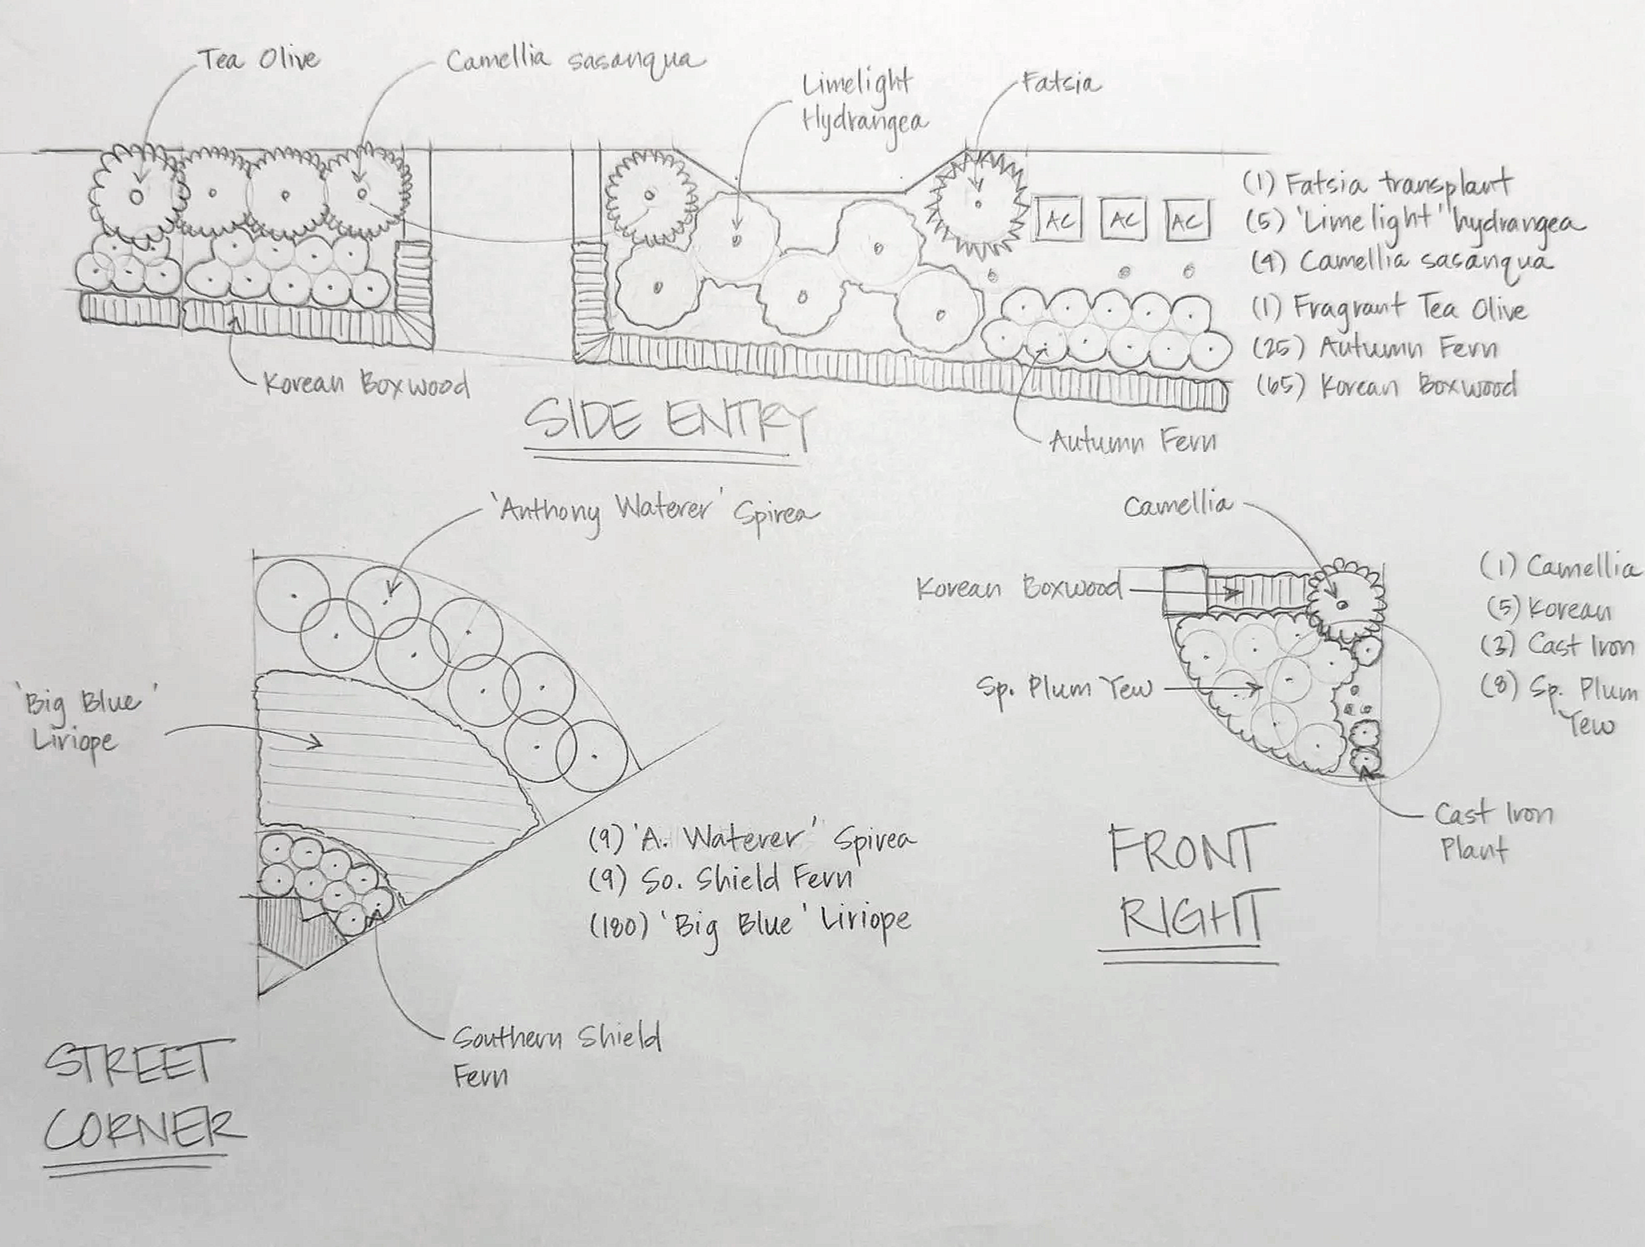 Tea Olive
Camellia sasanqua
Limelight
Hydrangea
Fatsia
AC
AC
AC
(1) Fatsia transplant
(5) 'Limelight' hydrangea
(4) Camellia sasanqua
(1) Fragrant Tea Olive
(25) Autumn Fern
(65) Korean Boxwood
Korean Boxwood
SIDE ENTRY
Autumn Fern
'Anthony Waterer' Spirea
'Big Blue'
Liriope
(9) 'A. Waterer' Spirea
(9) So. Shield Fern
(180) 'Big Blue' Liriope
Southern Shield
Fern
STREET
CORNER
Camellia
Korean Boxwood
Sp. Plum Yew
(1) Camellia
(5) Korean
(3) Cast Iron
(8) Sp. Plum
Yew
Cast Iron
Plant
FRONT
RIGHT